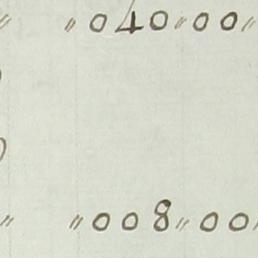 〃040〃00〃
〃008〃00〃